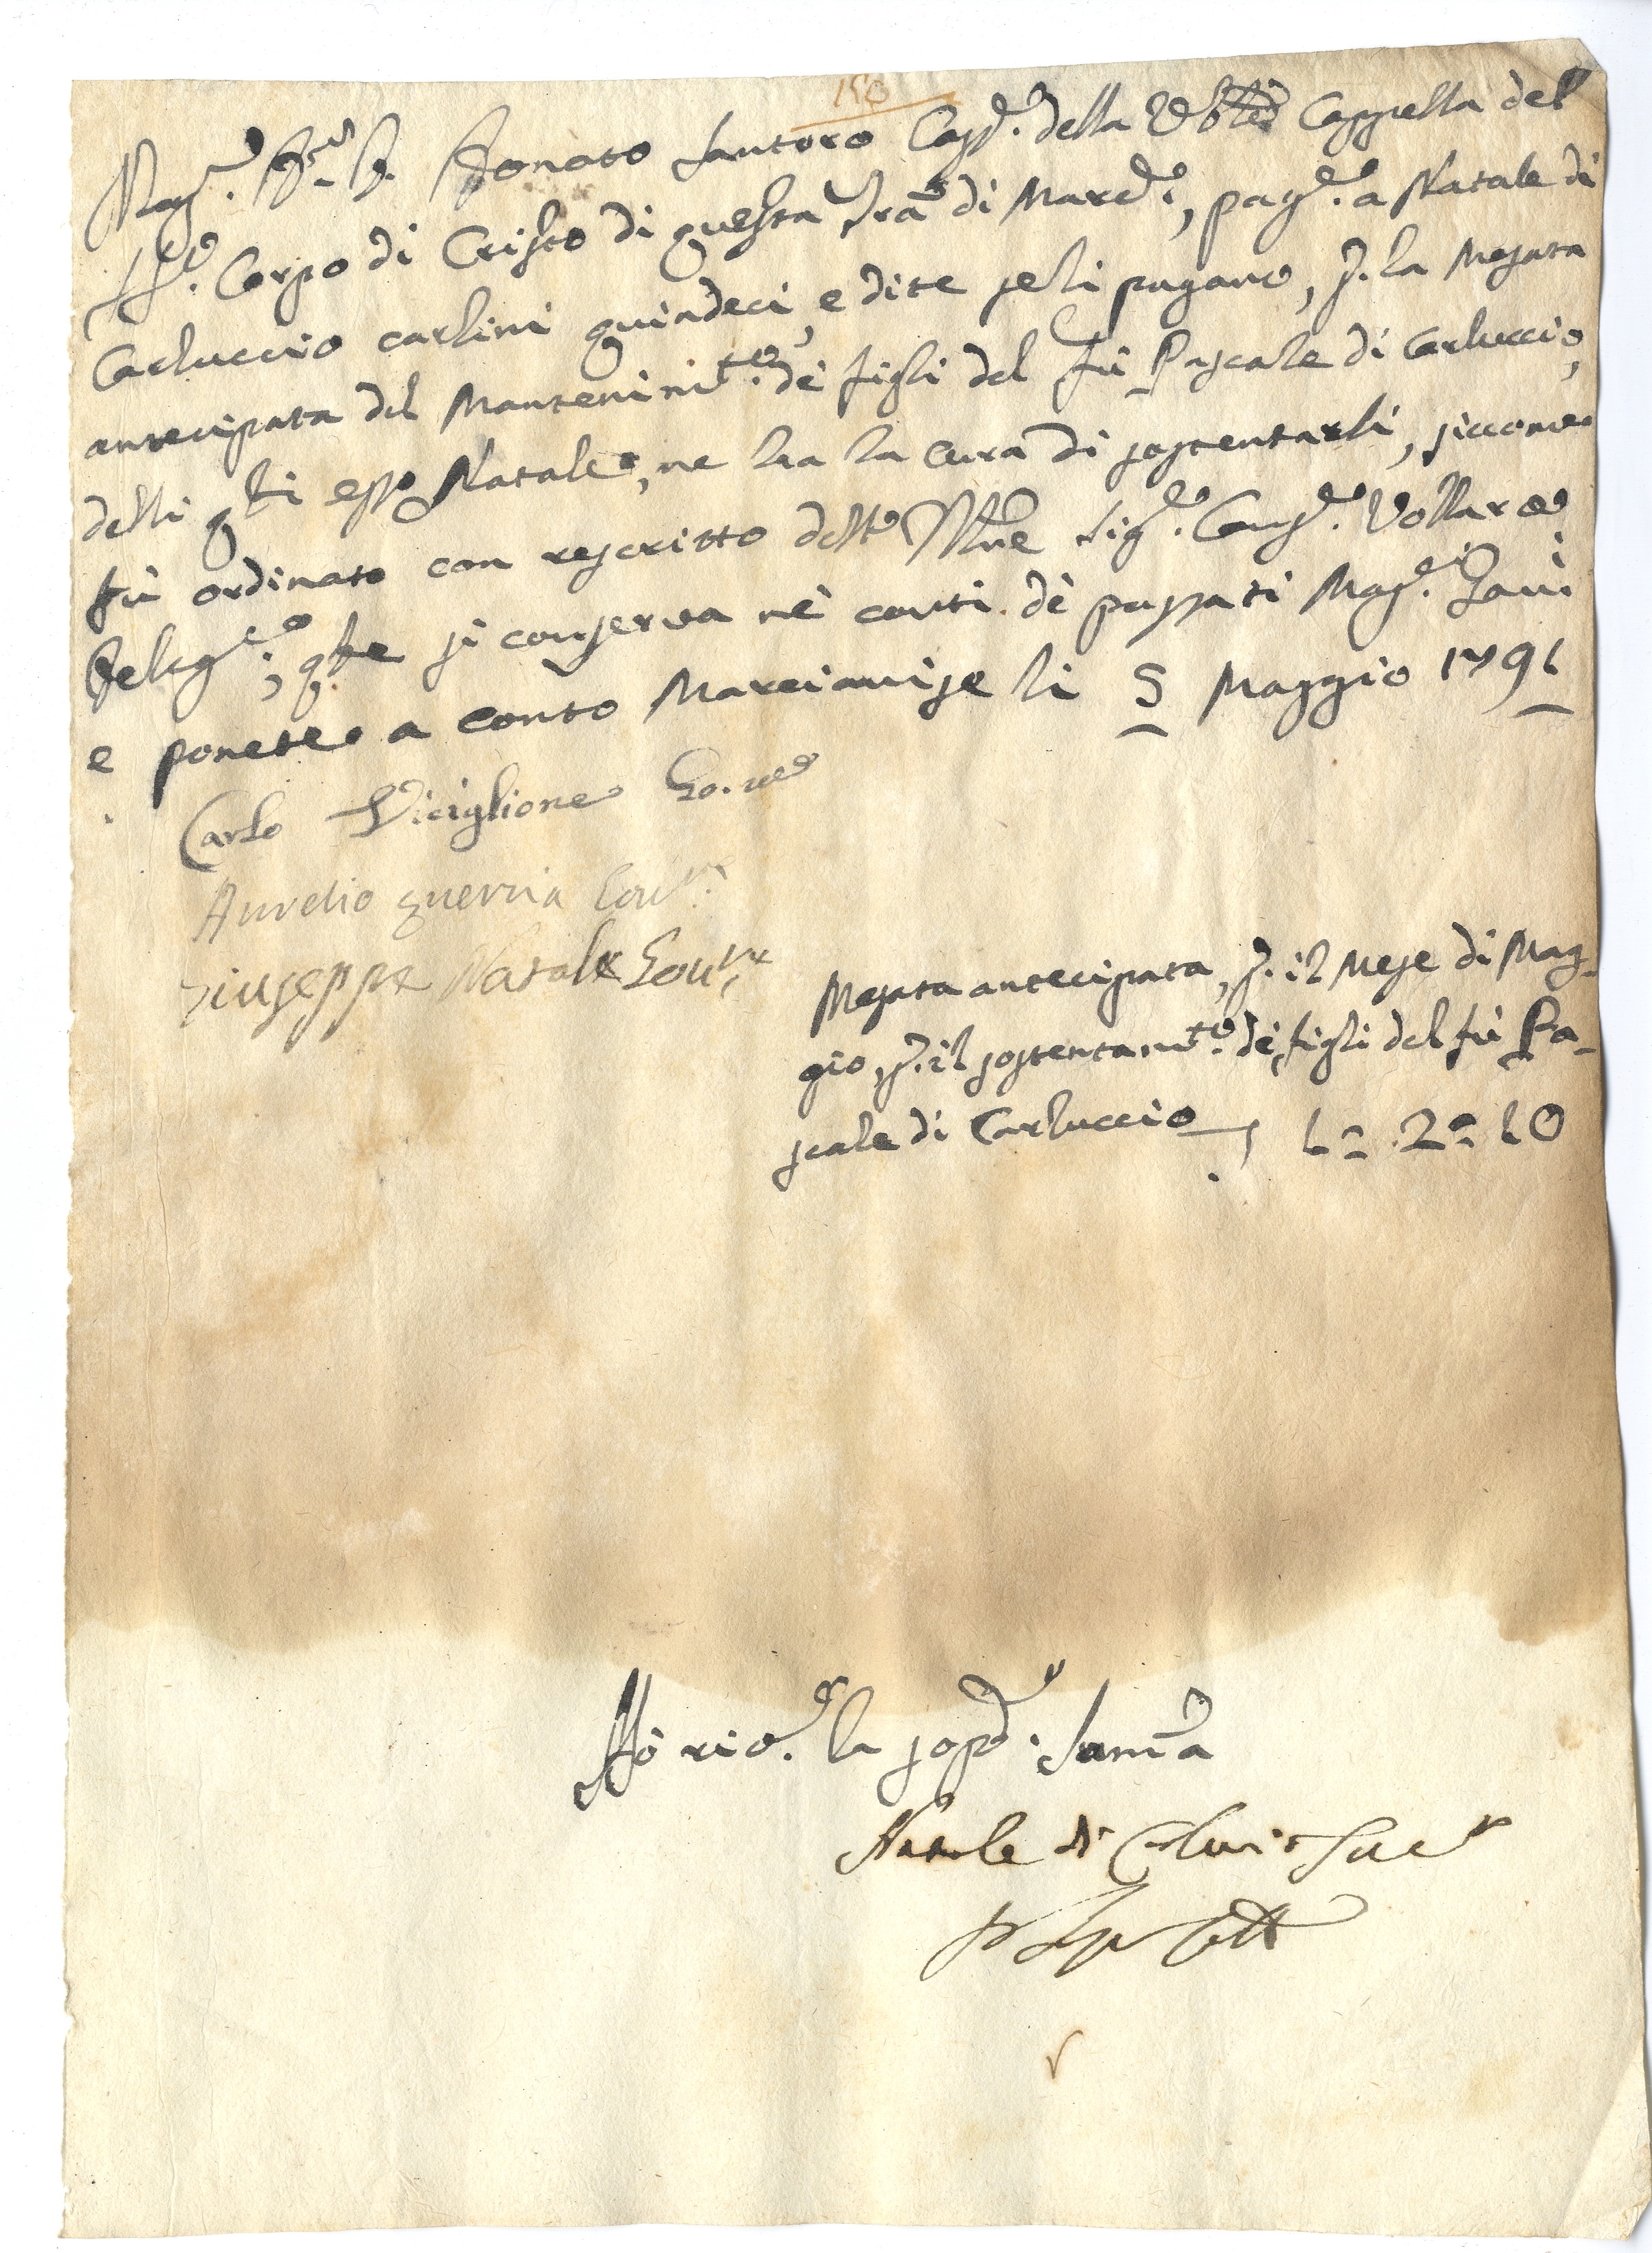 150
Mag.co D.r D. Donato Santoro Cass.e della Ve Cappella del
SS.o Corpo di Cristo di questa Tra di Marc.e, pag.e a Natale di
Carluccio carlini quindeci, e dite seli pagano, p. la Mesata
antecipata del Mantenim.to de' figli del fù Pascale di Carluccio,
delli qli esso Natale, ne ha la cura di sostentarli, siccome
fù ordinato con rescritto dell' Sig.e Cons.e Vollaro
Deleg.to, che si conserva ne' conti de' passati Mag.ci Gov.i
e ponete a conto Marcianise li 5 Maggio 1791
Carlo Viciglione Go.ve
Aurelio guerria Gov.re
Giuseppe Natale Gov.re
Mesata antecipata, p. il Mese di Mag-
gio, p. il sostentam.to de' figli del fù Pa-
scale di Carluccio 1 = 2 = 10
Ho ric.o la sop.a Summa
Natale di Carluccio